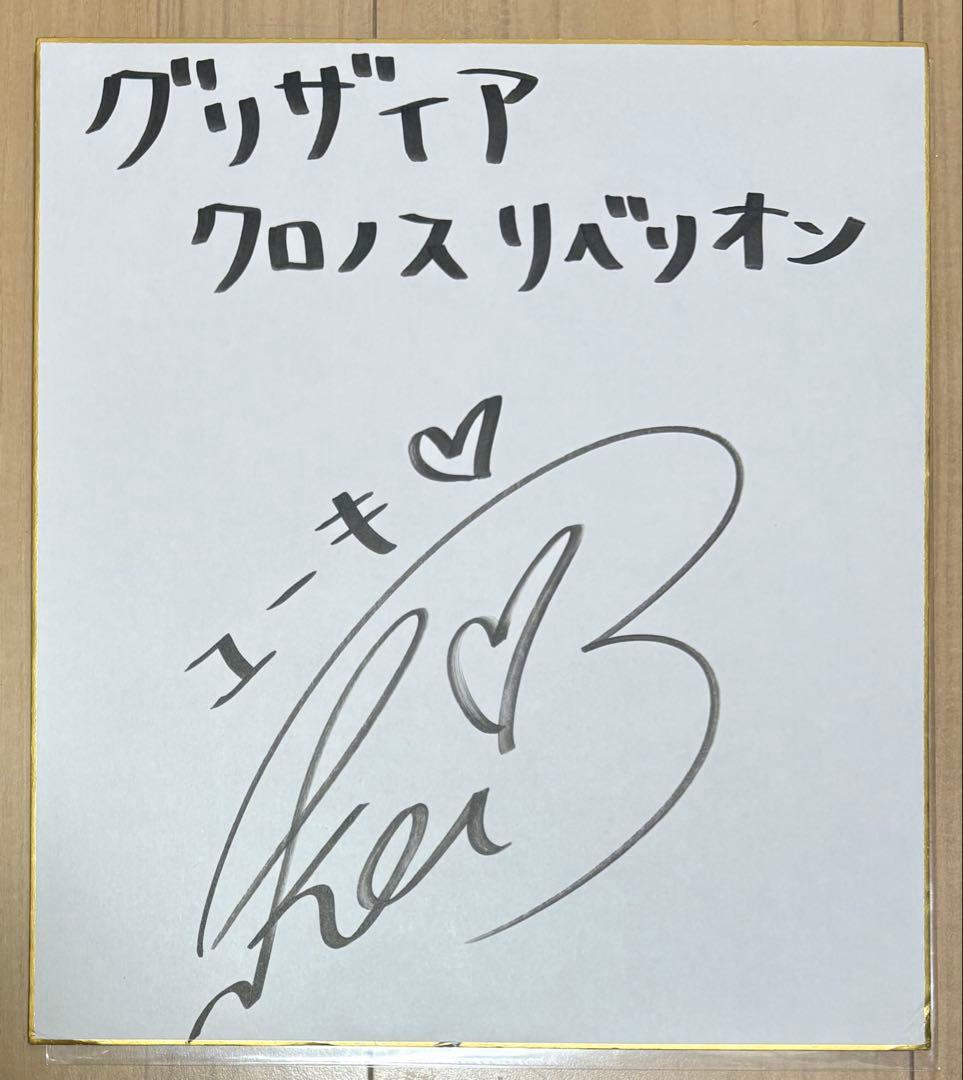 グリザイア
クロノスリベリオン
ユーキ♡
Kei